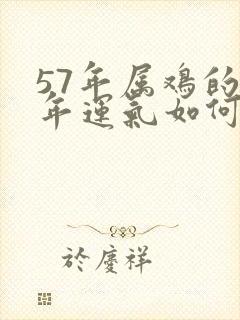 57年属鸡的
年運氣如何
於慶祥